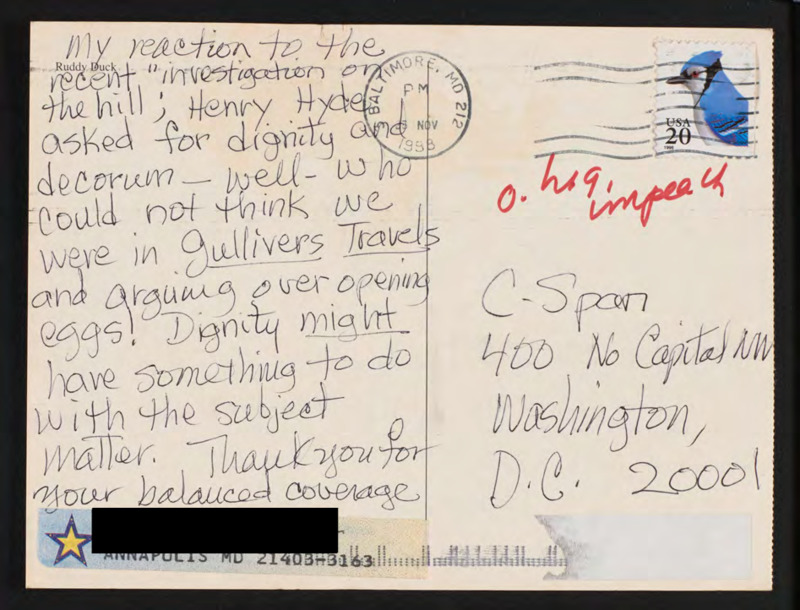 My reaction to the
Ruddy Duck
recent "investigation on
the hill; Henry Hyde
asked for dignity and
decorum — well — who
could not think we
were in Gullivers Travels
and arguing over opening
eggs! Dignity might
have something to do
with the subject
matter. Thank you for
your balanced coverage
ANNAPOLIS MD 21403-3163
BALTIMORE, MD 212
PM
NOV
1998
USA
20
impeach
C-Span
400 No Capital NW
Washington,
D.C. 20001